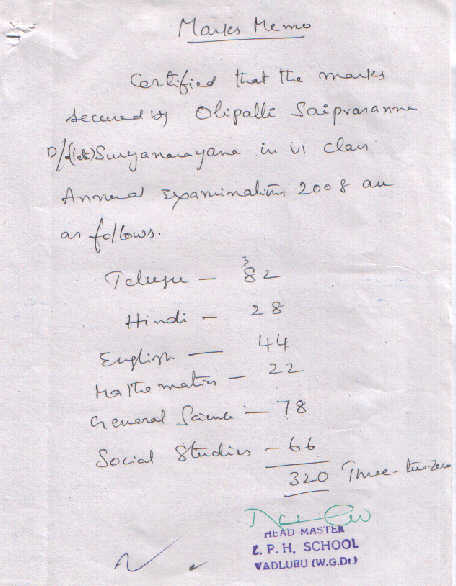 Marks Memo
Certified that the marks
secured by Olipalli Saiprasanna
D/o (late) Suryanarayana in VI class
Annual Examinations 2008 are
as follows.
Telugu — 82
Hindi — 28
English — 44
Mathematics — 22
General Science — 78
Social Studies — 66
320 Three-two-zero
HEAD MASTER
Z. P. H. SCHOOL
VADLURU (W.G.Dt)